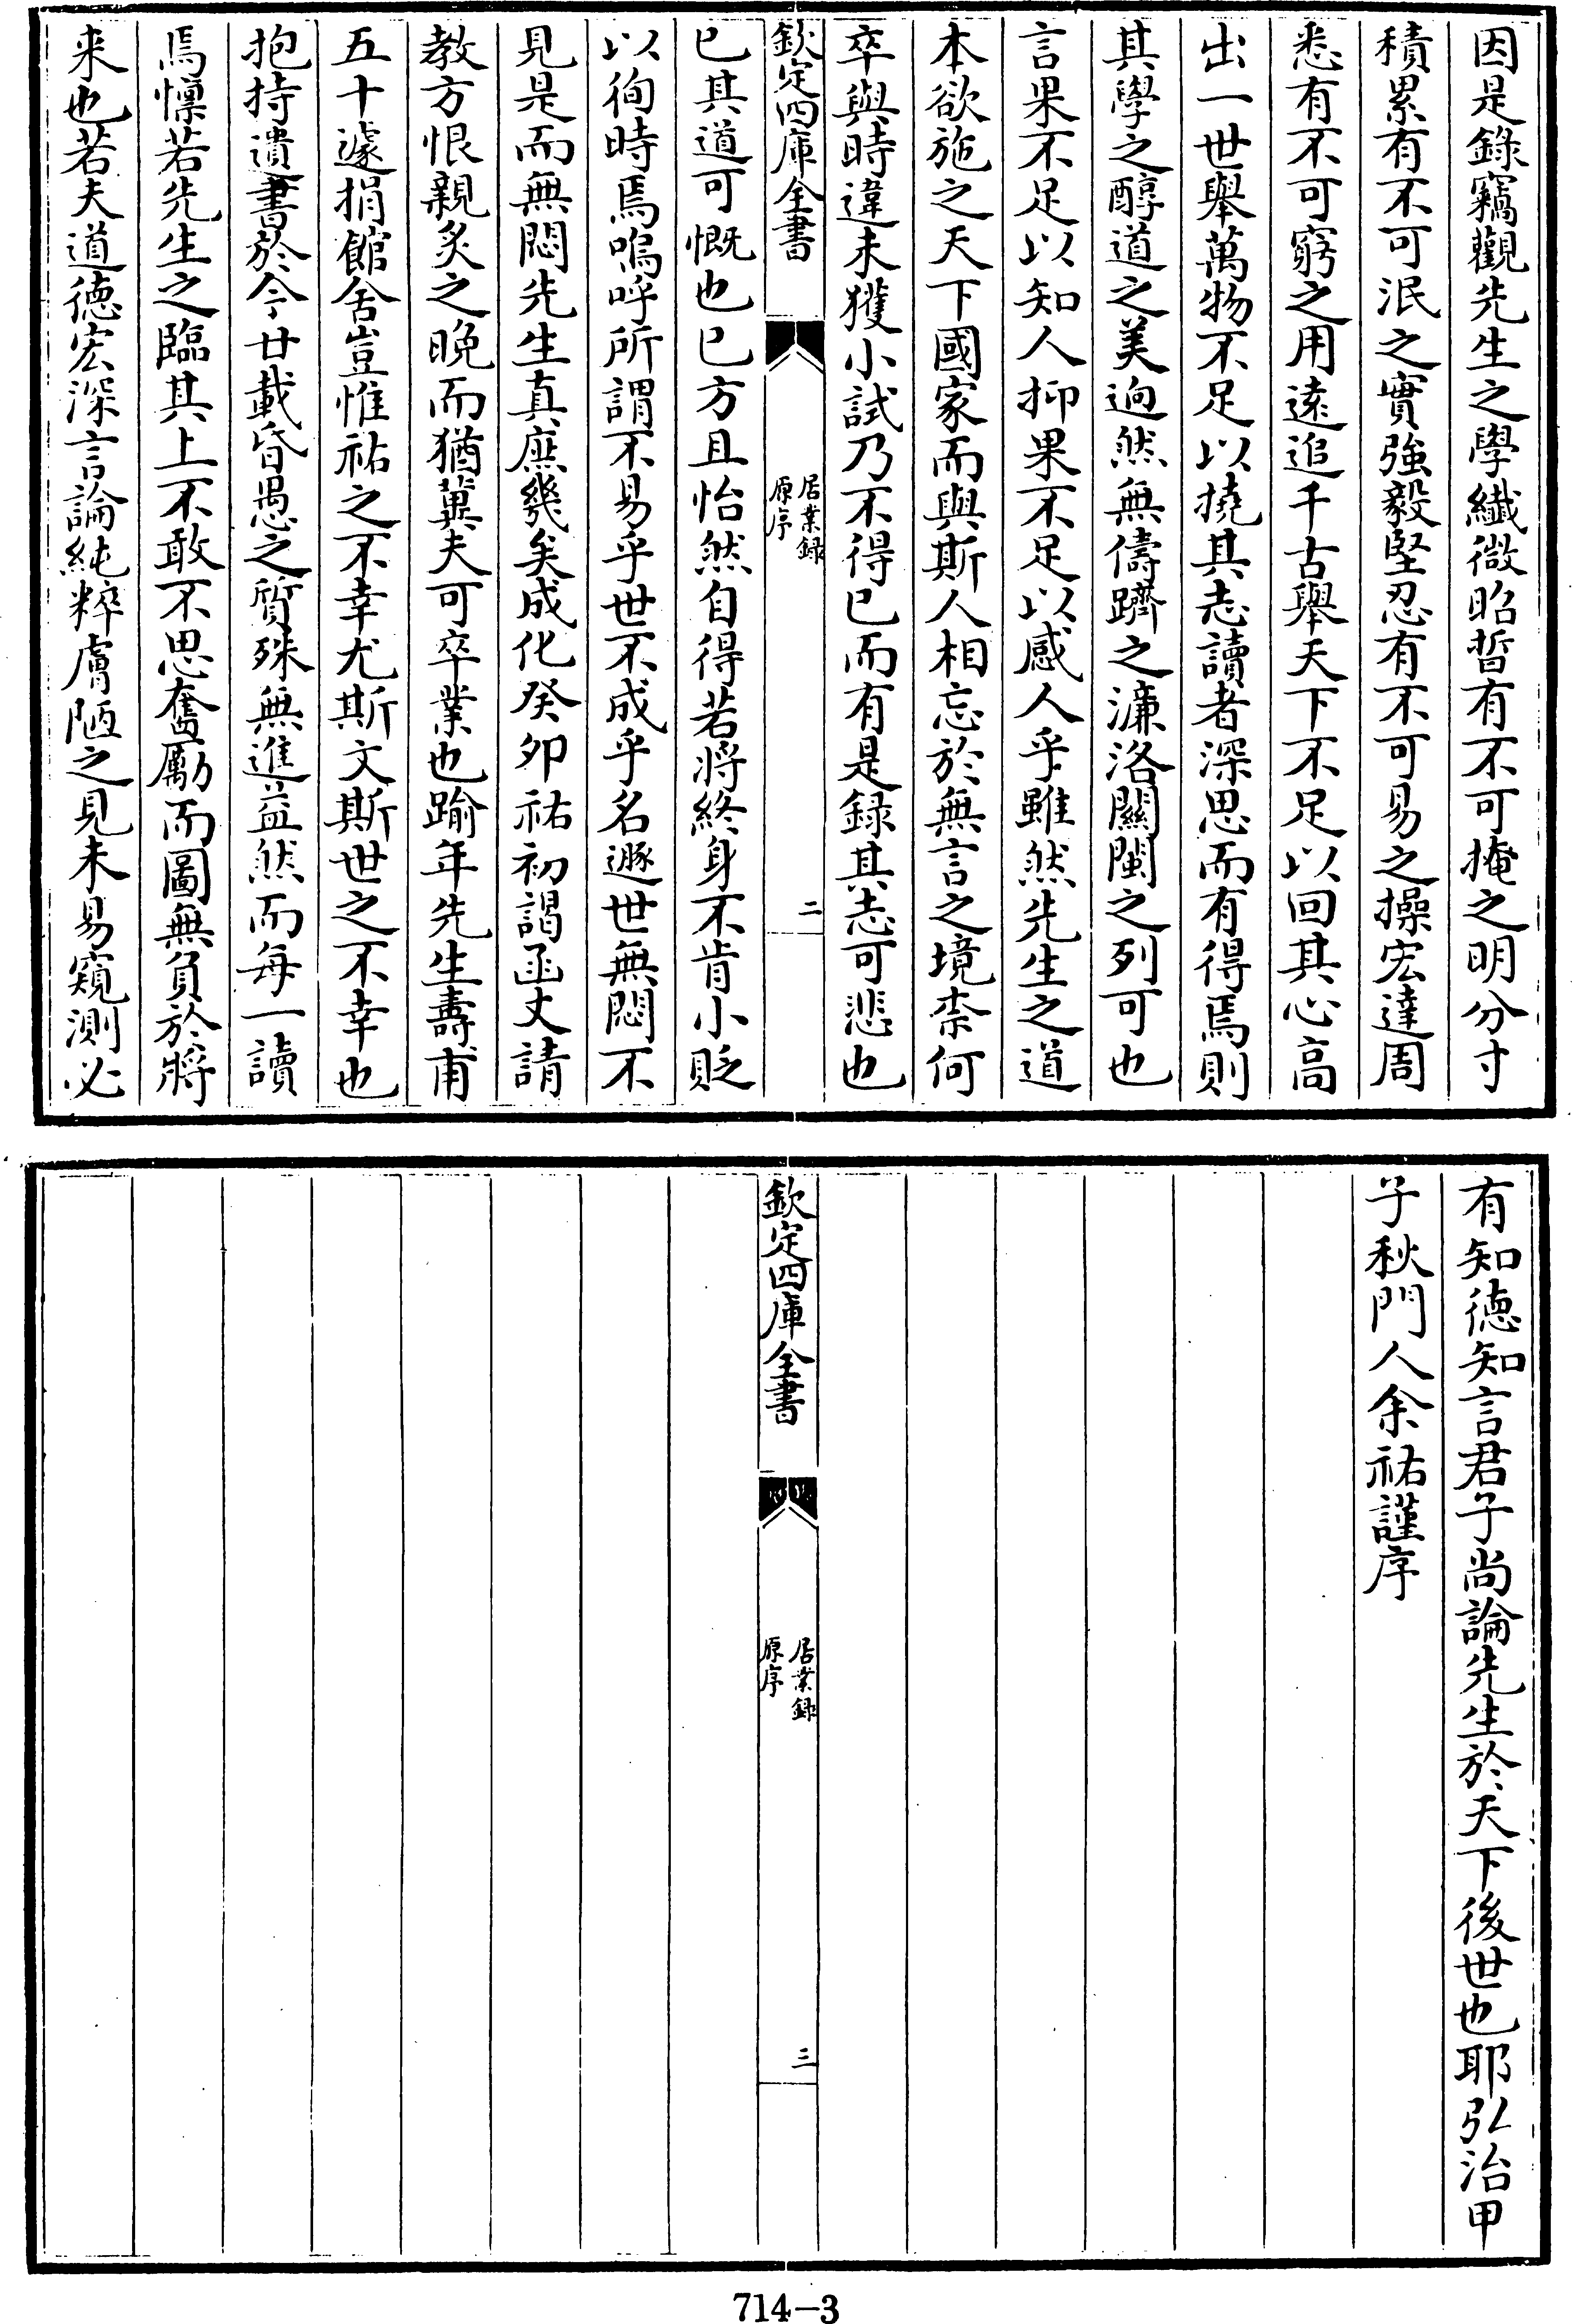 因是錄竊觀先生之學纖微昭晢有不可掩之明分寸
積累有不可泯之實強毅堅忍有不可易之操宏達周
悉有不可窮之用遠追千古舉天下不足以回其心高
出一世舉萬物不足以撓其志讀者深思而有得焉則
其學之醇道之美逈然無儔躋之濂洛關閩之列可也
言果不足以知人抑果不足以感人乎雖然先生之道
本欲施之天下國家而與斯人相忘於無言之境柰何
卒與時違未獲小試乃不得已而有是録其志可悲也
欽定四庫全書
居業録
原序
二
已其道可慨也已方且怡然自得若將終身不肯小貶
以徇時焉嗚呼所謂不易乎世不成乎名遯世無悶不
見是而無悶先生真庶幾矣成化癸卯祐初謁函丈請
教方恨親炙之晚而猶冀夫可卒業也踰年先生壽甫
五十遽捐館舍豈惟祐之不幸尤斯文斯世之不幸也
抱持遺書於今廿載昏愚之質殊無進益然而每一讀
焉懔若先生之臨其上不敢不思奮勵而圖無負於將
来也若夫道德宏深言論純粹膚陋之見未易窺測必
有知德知言君子尚論先生於天下後世也耶弘治甲
子秋門人余祐謹序
欽定四庫全書
居業録
原序
三
714-3